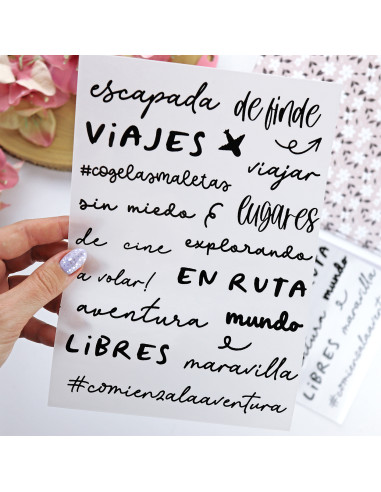 escapada de finde
VIAJES
viajar
#cogelasmaletas
sin miedo lugares
de cine explorando
a volar! EN RUTA
aventura mundo
LIBRES maravilla
#comienzalaaventura
mundo
LIBRES maravilla
#comienzalaaventura